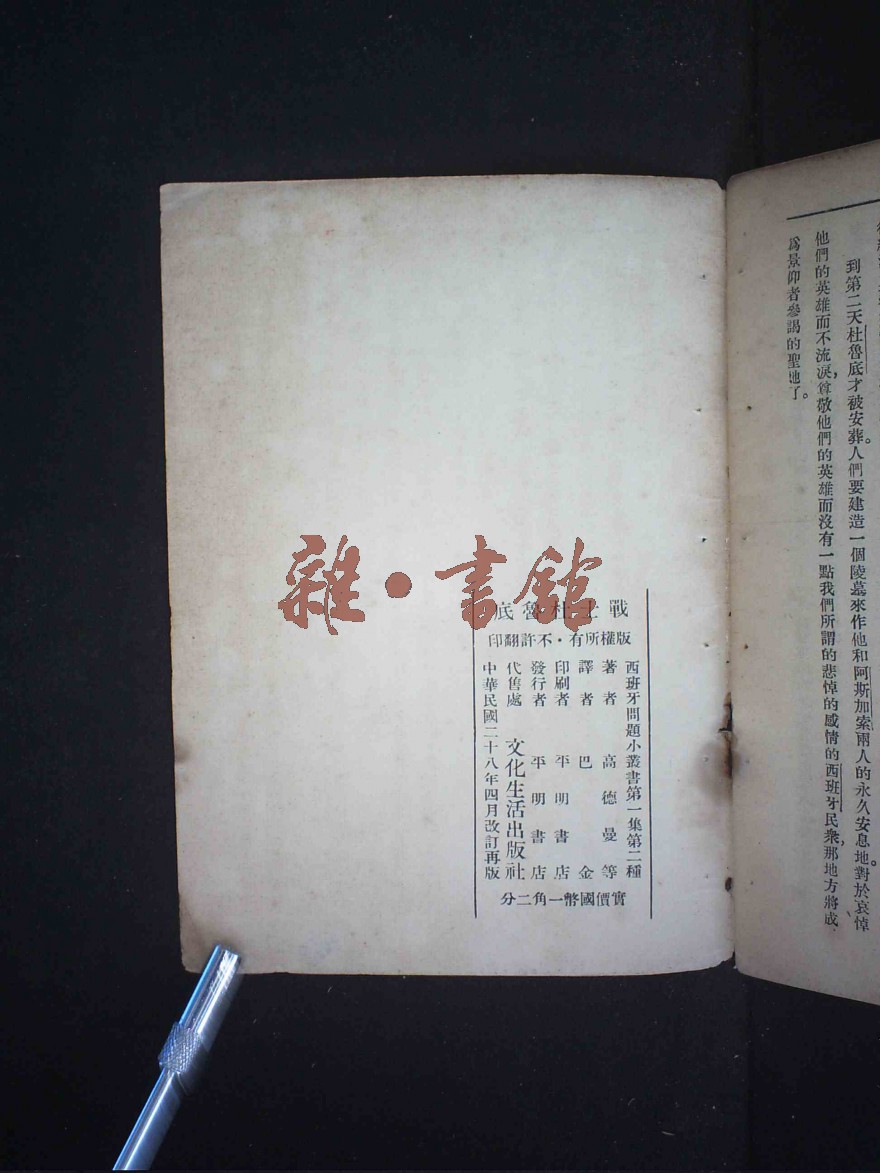 到第二天杜魯底才被安葬。人們要建造一個陵墓來作他和阿斯加索兩人的永久安息地。對於哀悼
他們的英雄而不流淚，尊敬他們的英雄而沒有一點我們所謂的悲悼的感情的西班牙民衆，那地方將成
爲景仰者參謁的聖地了。
戰士杜魯底
版權所有・不許翻印
西班牙問題小叢書第一集第二種
著者 高德曼等
譯者 巴金
印刷者 平明書店
發行者 平明書店
代售處 文化生活出版社
中華民國二十八年四月改訂再版
實價國幣一角二分
雜・書館